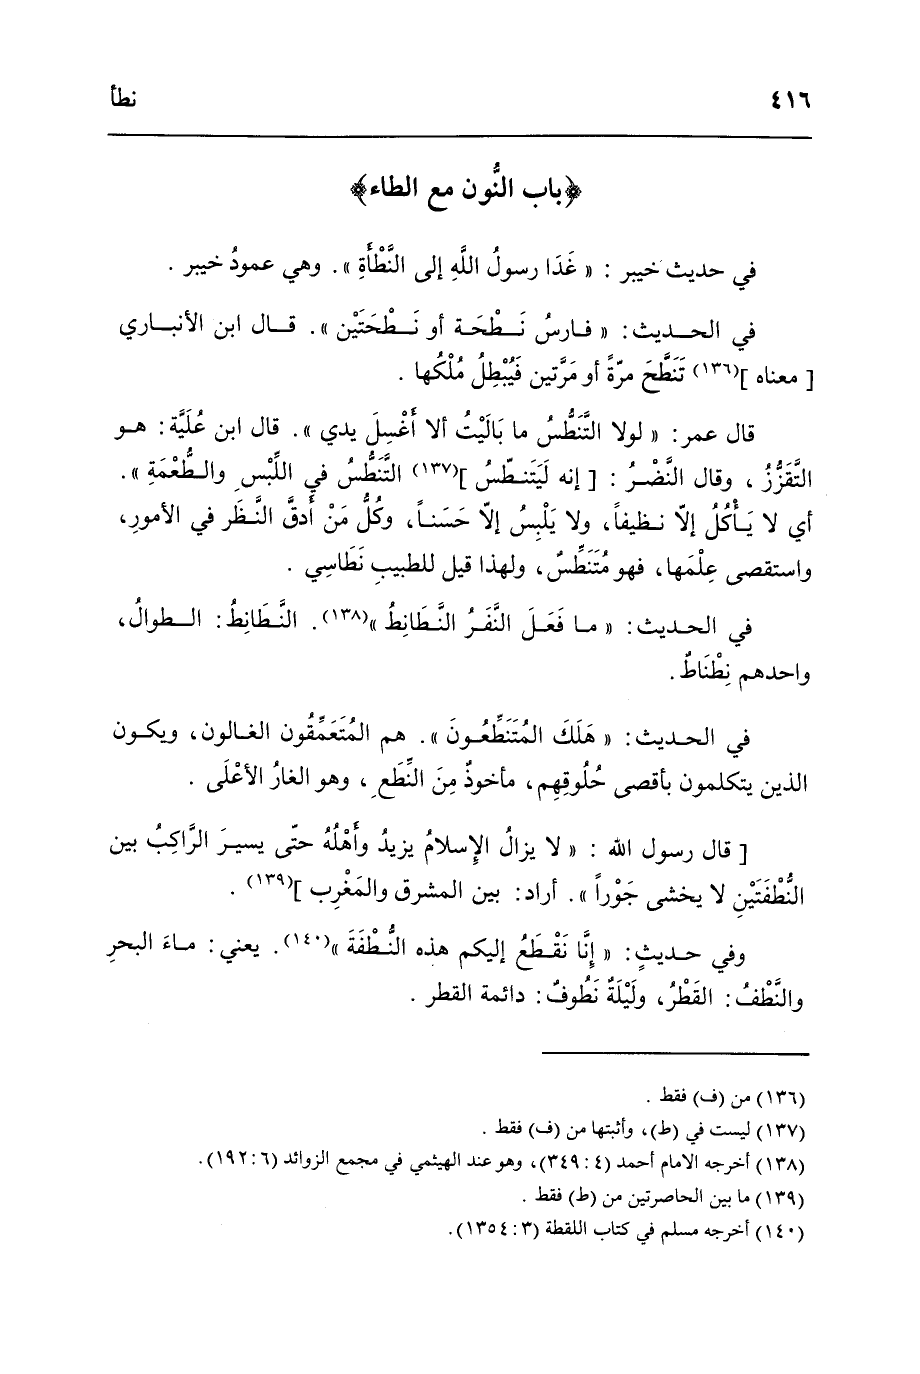 ٤١٦ نطأ
﴿باب النُّون مع الطاء﴾
في حديث خيبر : « غَدَا رسولُ اللَّهِ إلى النَّطْأَةِ ». وهي عمودُ خيبر .
في الحـديث: « فـارسُ نَـطْحَـة أو نَـطْحَتَيْن ». قـال ابن الأنبـاري
[ معناه ](١٣٦) تَنَطَّحَ مرّةً أو مَرَّتين فَيُبْطِلُ مُلْكُها .
قال عمر: « لولا التَّنَطُّسُ ما بَالَيْتُ ألا أَغْسِلَ يدي ». قال ابن عُلَيَّة: هـو
التَّقَزُّزُ ، وقال النَّضْـرُ : [ إنه لَيَتَنـطّسُ ](١٣٧) التَّنَطُّسُ في اللِّبْسِ والـطُّعْمَةِ ».
أي لا يَـأْكُلُ إلاّ نـظيفاً، ولا يَلْبِسُ إلاّ حَسَنـاً، وكُلُّ مَنْ أَدقَّ النَّـظَر في الأمورِ،
واستقصى عِلْمَها، فهو مُتَنَطِّسٌ، ولهذا قيل للطبيبِ نَطَاسِي .
في الحـديث: « مـا فَعَـلَ النَّفَـرُ النَّـطَانِطُ »(١٣٨). النَّـطَانِطُ: الـطوالُ،
واحدهم نِطْنَاطٌ.
في الحـديث: « هَلَكَ المُتَنَطِّعُـونَ ». هم المُتَعَمِّقُون الغـالون، ويكـون
الذين يتكلمون بأقصى حُلُوقِهِم، مأخوذٌ مِنَ النِّطَعِ ، وهو الغارُ الأعْلَى .
[ قال رسول الله : « لا يزالُ الإِسلامُ يزيدُ وأَهْلُهُ حتّى يسيـرَ الرَّاكِبُ بين
النُّطْفَتَيْنِ لا يخشى جَوْراً ». أراد: بين المشرق والمَغْرِب ](١٣٩) .
وفي حـديثٍ: « إِنَّا نَقْـطَعُ إليكم هذه النُّـطْفَةَ »(١٤٠). يعني: مـاءَ البحرِ
والنَّطْفُ: القَطْرُ، ولَيْلَةٌ نَطُوفٌ: دائمة القطر .
(١٣٦) من (ف) فقط .
(١٣٧) ليست في (ط)، وأثبتها من (ف) فقط .
(١٣٨) أخرجه الامام أحمد (٤ : ٣٤٩)، وهو عند الهيثمي في مجمع الزوائد (٦ : ١٩٢).
(١٣٩) ما بين الحاصرتين من (ط) فقط .
(١٤٠) أخرجه مسلم في كتاب اللقطة (٣ : ١٣٥٤).